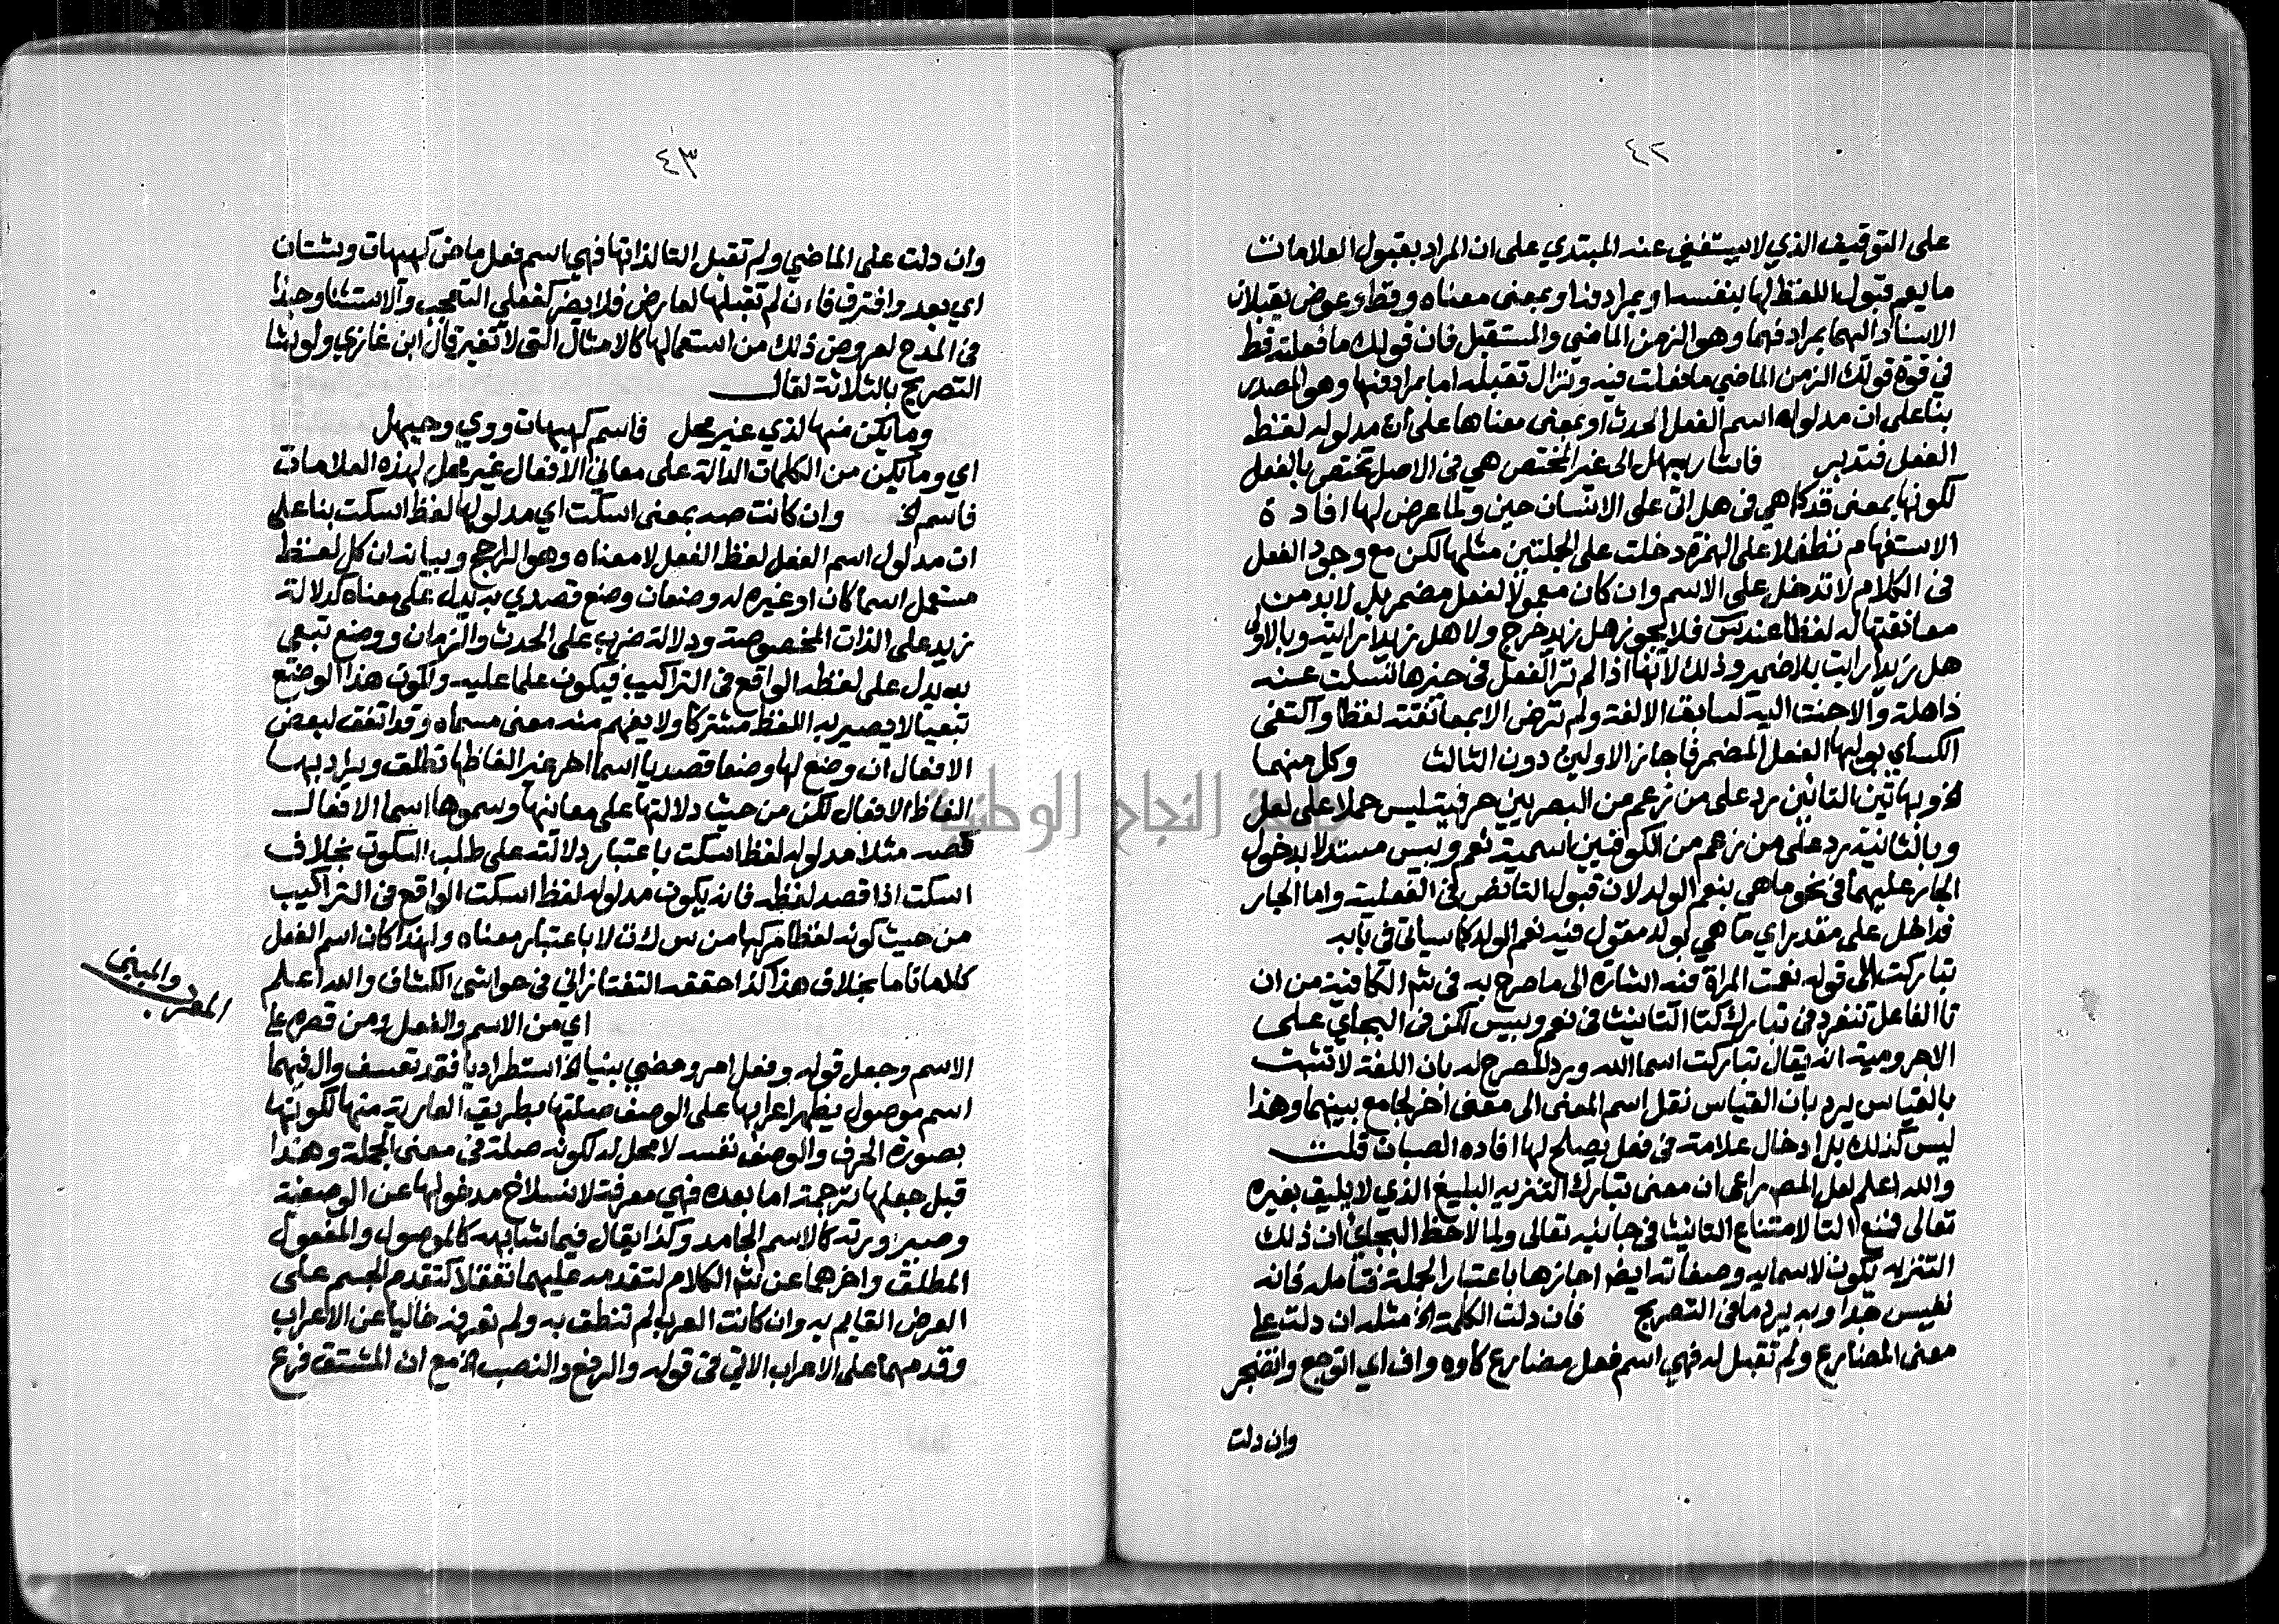 ٤٢
على التوقيف الذي لا يستغني عنه المبتدي على ان المراد بقبول العلامات
ما يعم قبول اللفظ لها بنفسه او بمرادفه او بمعنى معناه وقط وعوض يقبلان
الاسناد اليهما بمرادفهما وهو الزمن الماضي والمستقبل فان قولك ما فعلته قط
في قوة قولك الزمن الماضي ما فعلت فيه ونزال تقبله اما بمرادفها وهو المصدر
بنا على ان مدلول اسم الفعل الحدث او بمعنى معناها على ان مدلوله لفظ
الفعل فتدبر فاشار بهل الى غير المختص هي في الاصل تختص بالفعل
لكونها بمعنى قد كما هي في هل اتى على الانسان حين ولما عرض لها افادة
الاستفهام تطفلا على الهمزة دخلت على الجملتين مثلها لكن مع وجود الفعل
في الكلام لا تدخل على الاسم وان كان معمولا لفعل مضمر بل لابد من
معانقتها له لفظا عند س فلا يجوز هل زيد خرج ولا هل زيدا رايته وبالاولى
هل زيدا رايت بلا ضمير وذلك لانها اذا لم تر الفعل في حيزها تسلت عنه
ذاهلة والا حنت اليه لسابق الالفة ولم ترض الا بمعانقته لفظا واكتفى
الكساي بوليها الفعل المضمر فاجاز الاولين دون الثالث وكل منهما
الخ وبهاتين التائين رد على من زعم من البصريين حرفية ليس حملا على لعل
وبالثانية رد على من زعم من الكوفيين اسمية نعم وبيس مستدلا بدخول
الجار عليهما في نحو ما هي بنعم الولد لان قبول التا نص في الفعلية واما الجار
فداخل على مقدر اي ما هي بولد مقول فيه نعم الولد كما سياتي في بابه
تباركت الى قوله نعمت المراة فيه اشارة الى ما صرح به في شرح الكافية من ان
تا الفاعل تنفرد في تبارك كتا التانيث في نعم وبيس لكن في البجاي على
الاجرومية انه يقال تباركت اسما الله ورد المصرح له بان اللغة لا تثبت
بالقياس يرد بان القياس نقل اسم المعنى الى معنى اخر لجامع بينهما وهذا
ليس كذلك بل ادخال علامة في فعل يصلح لها افاده الصبان قلت
والله اعلم لعل المصم راعى ان معنى تبارك التنزيه البليغ الذي لا يليق بغيره
تعالى فمنع التا لامتناع التانيث في جانبه تعالى ولما لاحظ البجاي ان ذلك
التنزيه يكون لاسمايه وصفاته ايضا اجازها باعتبار الجملة فتامله فانه
نفيس جدا وبه يرد ما في التصريح فان دلت الكلمة الخ مثله ان دلت على
معنى المضارع ولم تقبل لم فهي اسم فعل مضارع كاوه واف اي اتوجع واتضجر
وان دلت
٤٣
وان دلت على الماضي ولم تقبل التا لذاتها فهي اسم فعل ماض كهيهات وشتان
اي بعد وافترق فان لم تقبلها لعارض فلا يضر كفعلي التعجب والاستثنا وحبذا
في المدح لعروض ذلك من استعمالها كالامثال التي لا تغير قال ابن غازي ولو شا
التصريح بالثلاثة لقال
وما يكن منها لذي غير محل فاسم كهيهات ووي وحيهل
اي وما يكن من الكلمات الدالة على معاني الافعال غير محل لهذه العلامات
فاسم الخ وان كانت صه بمعنى اسكت اي مدلولها لفظ اسكت بنا على
ان مدلول اسم الفعل لفظ الفعل لا معناه وهو الراجح وبيانه ان كل لفظ
مستعمل اسما كان او غيره له وضعان وضع قصدي به يدل على معناه كدلالة
زيد على الذات المخصوصة ودلالة ضرب على الحدث والزمان ووضع تبعي
به يدل على لفظه الواقع في التراكيب فيكون علما عليه ولكون هذا الوضع
تبعيا لا يصير به اللفظ مشتركا ولا يفهم منه معنى مسماه وقد اتفق لبعض
الافعال ان وضع لها وضعا قصديا اسما اخر غير الفاظها تطلق ويراد بها
الفاظ الافعال لكن من حيث دلالتها على معانيها وسموها اسما الافعال
فصه مثلا مدلوله لفظ اسكت باعتبار دلالته على طلب السكوت بخلاف
اسكت اذا قصد لفظه فانه يكون مدلوله لفظ اسكت الواقع في التراكيب
من حيث كونه لفظا مركبا من س ك ت لا باعتبار معناه ولهذا كان اسم الفعل
كلاما تاما بخلاف هذا كذا حققه التفتازاني في حواشي الكشاف والله اعلم
المعرب والمبنى
اي من الاسم والفعل ومن قصره على
الاسم وجعل قوله وفعل امر ومضي بنيا الخ استطراديا فقد تعسف وال فيهما
اسم موصول يظهر اعرابها على الوصف صلتها بطريق العارية منها لكونها
بصورة الحرف والوصف نفسه لا محل له لكونه صلة في معنى الجملة وهذا
قبل جعلها ترجمة اما بعده فهي معرفة لانسلاخ مدخولها عن الوصفية
وصيرورته كالاسم الجامد وكذا يقال فيما شابهه كالموصول والمفعول
المطلق واخرهما عن شرح الكلام لتقدمه عليهما تعقلا كتقدم الجسم على
العرض القايم به وان كانت العرب لم تنطق به ولم تعرفه خاليا عن الاعراب
وقدمهما على الاعراب الاتي في قوله والرفع والنصب الخ مع ان المشتق فرع